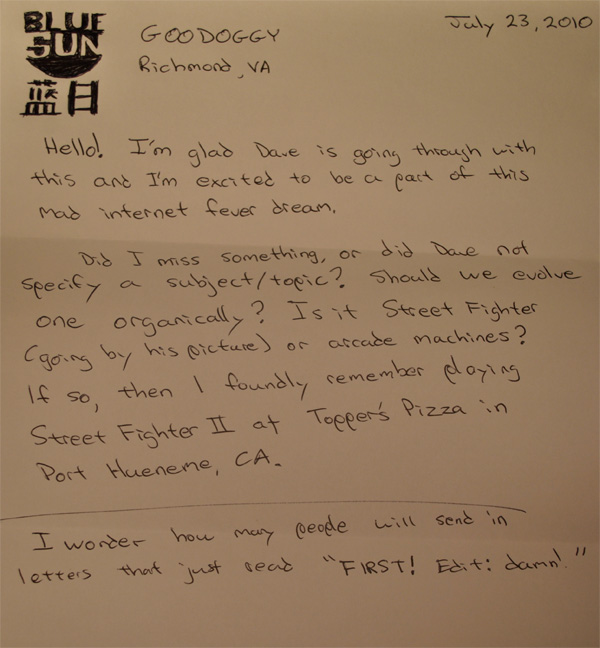 BLUE
SUN
蓝日
GOODOGGY
Richmond, VA
July 23, 2010
Hello! I'm glad Dave is going through with
this and I'm excited to be a part of this
mad internet fever dream.
Did I miss something, or did Dave not
specify a subject/topic? Should we evolve
one organically? Is it Street Fighter
(going by his picture) or arcade machines?
If so, then I foundly remember playing
Street Fighter II at Topper's Pizza in
Port Hueneme, CA.
I wonder how may people will send in
letters that just read "FIRST! Edit: damn!"